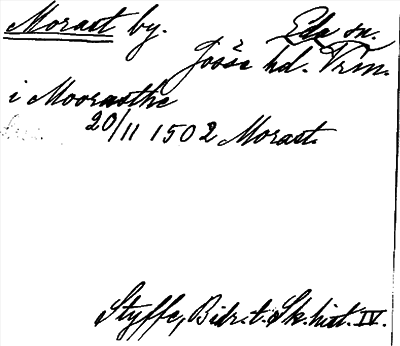 Morast by. Eda sn.
Jösse hd. Vrm.
i Moorasthe
20/11 1502 Morast.
Styffe, Bidr. t. Sk. hist. IV.